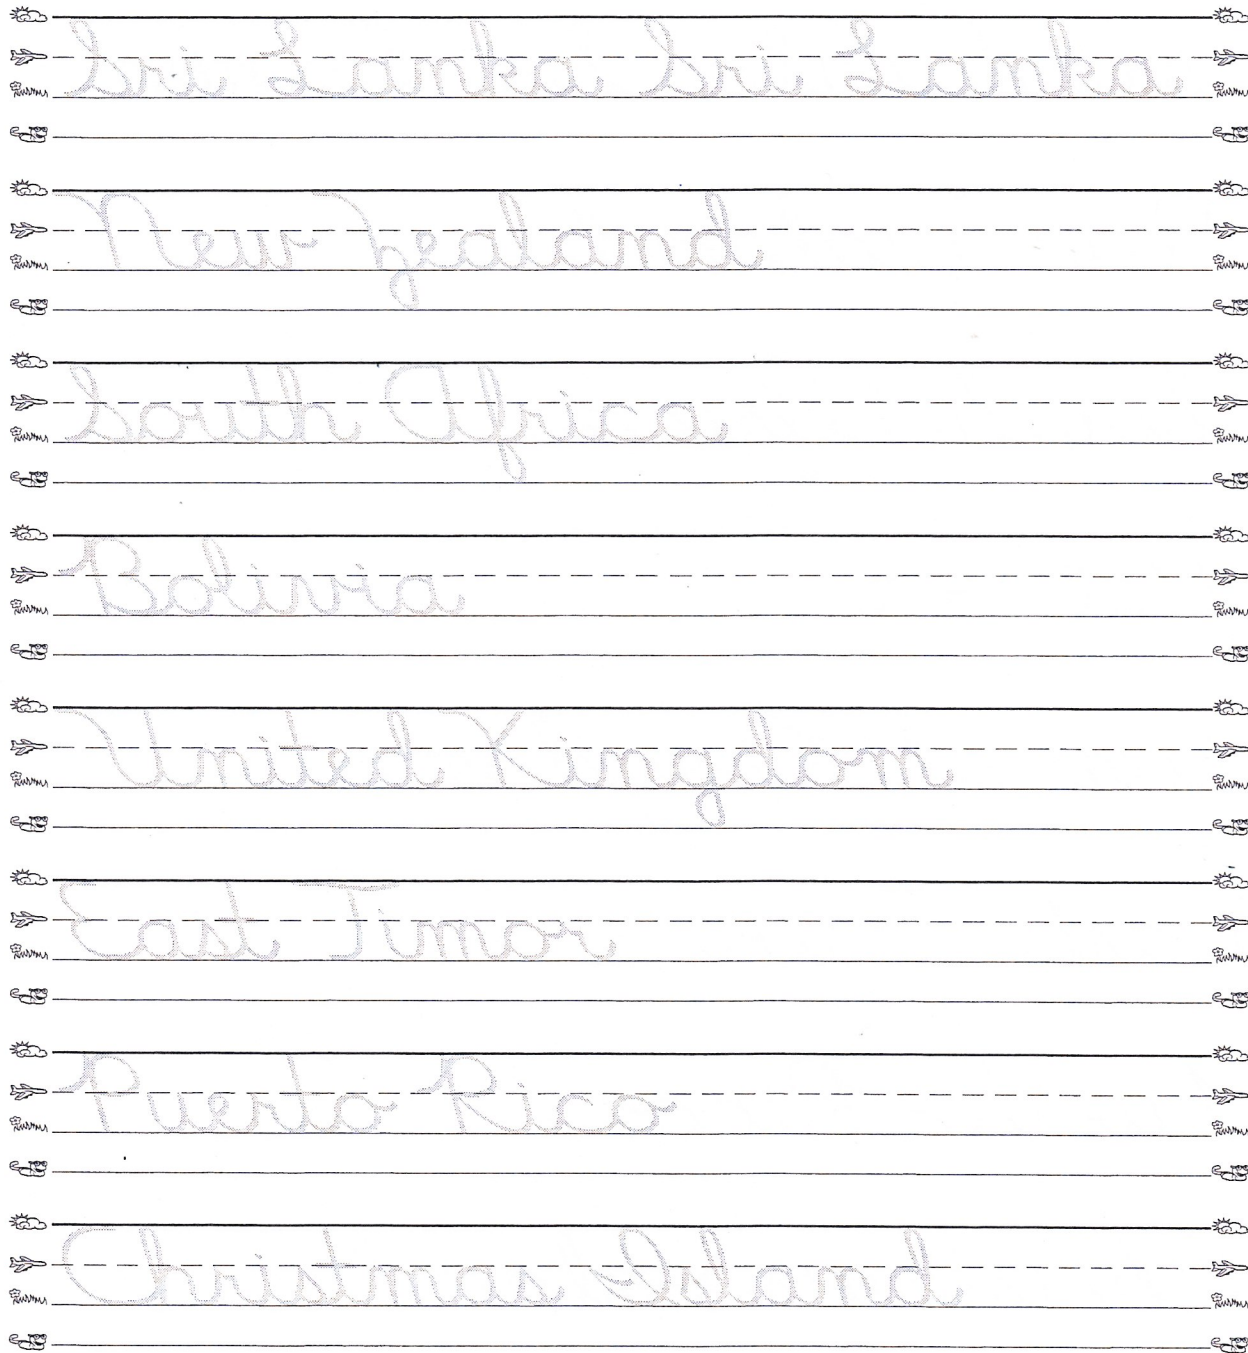 Sri Lanka Sri Lanka
New Zealand
South Africa
Bolivia
United Kingdom
East Timor
Puerto Rico
Christmas Island